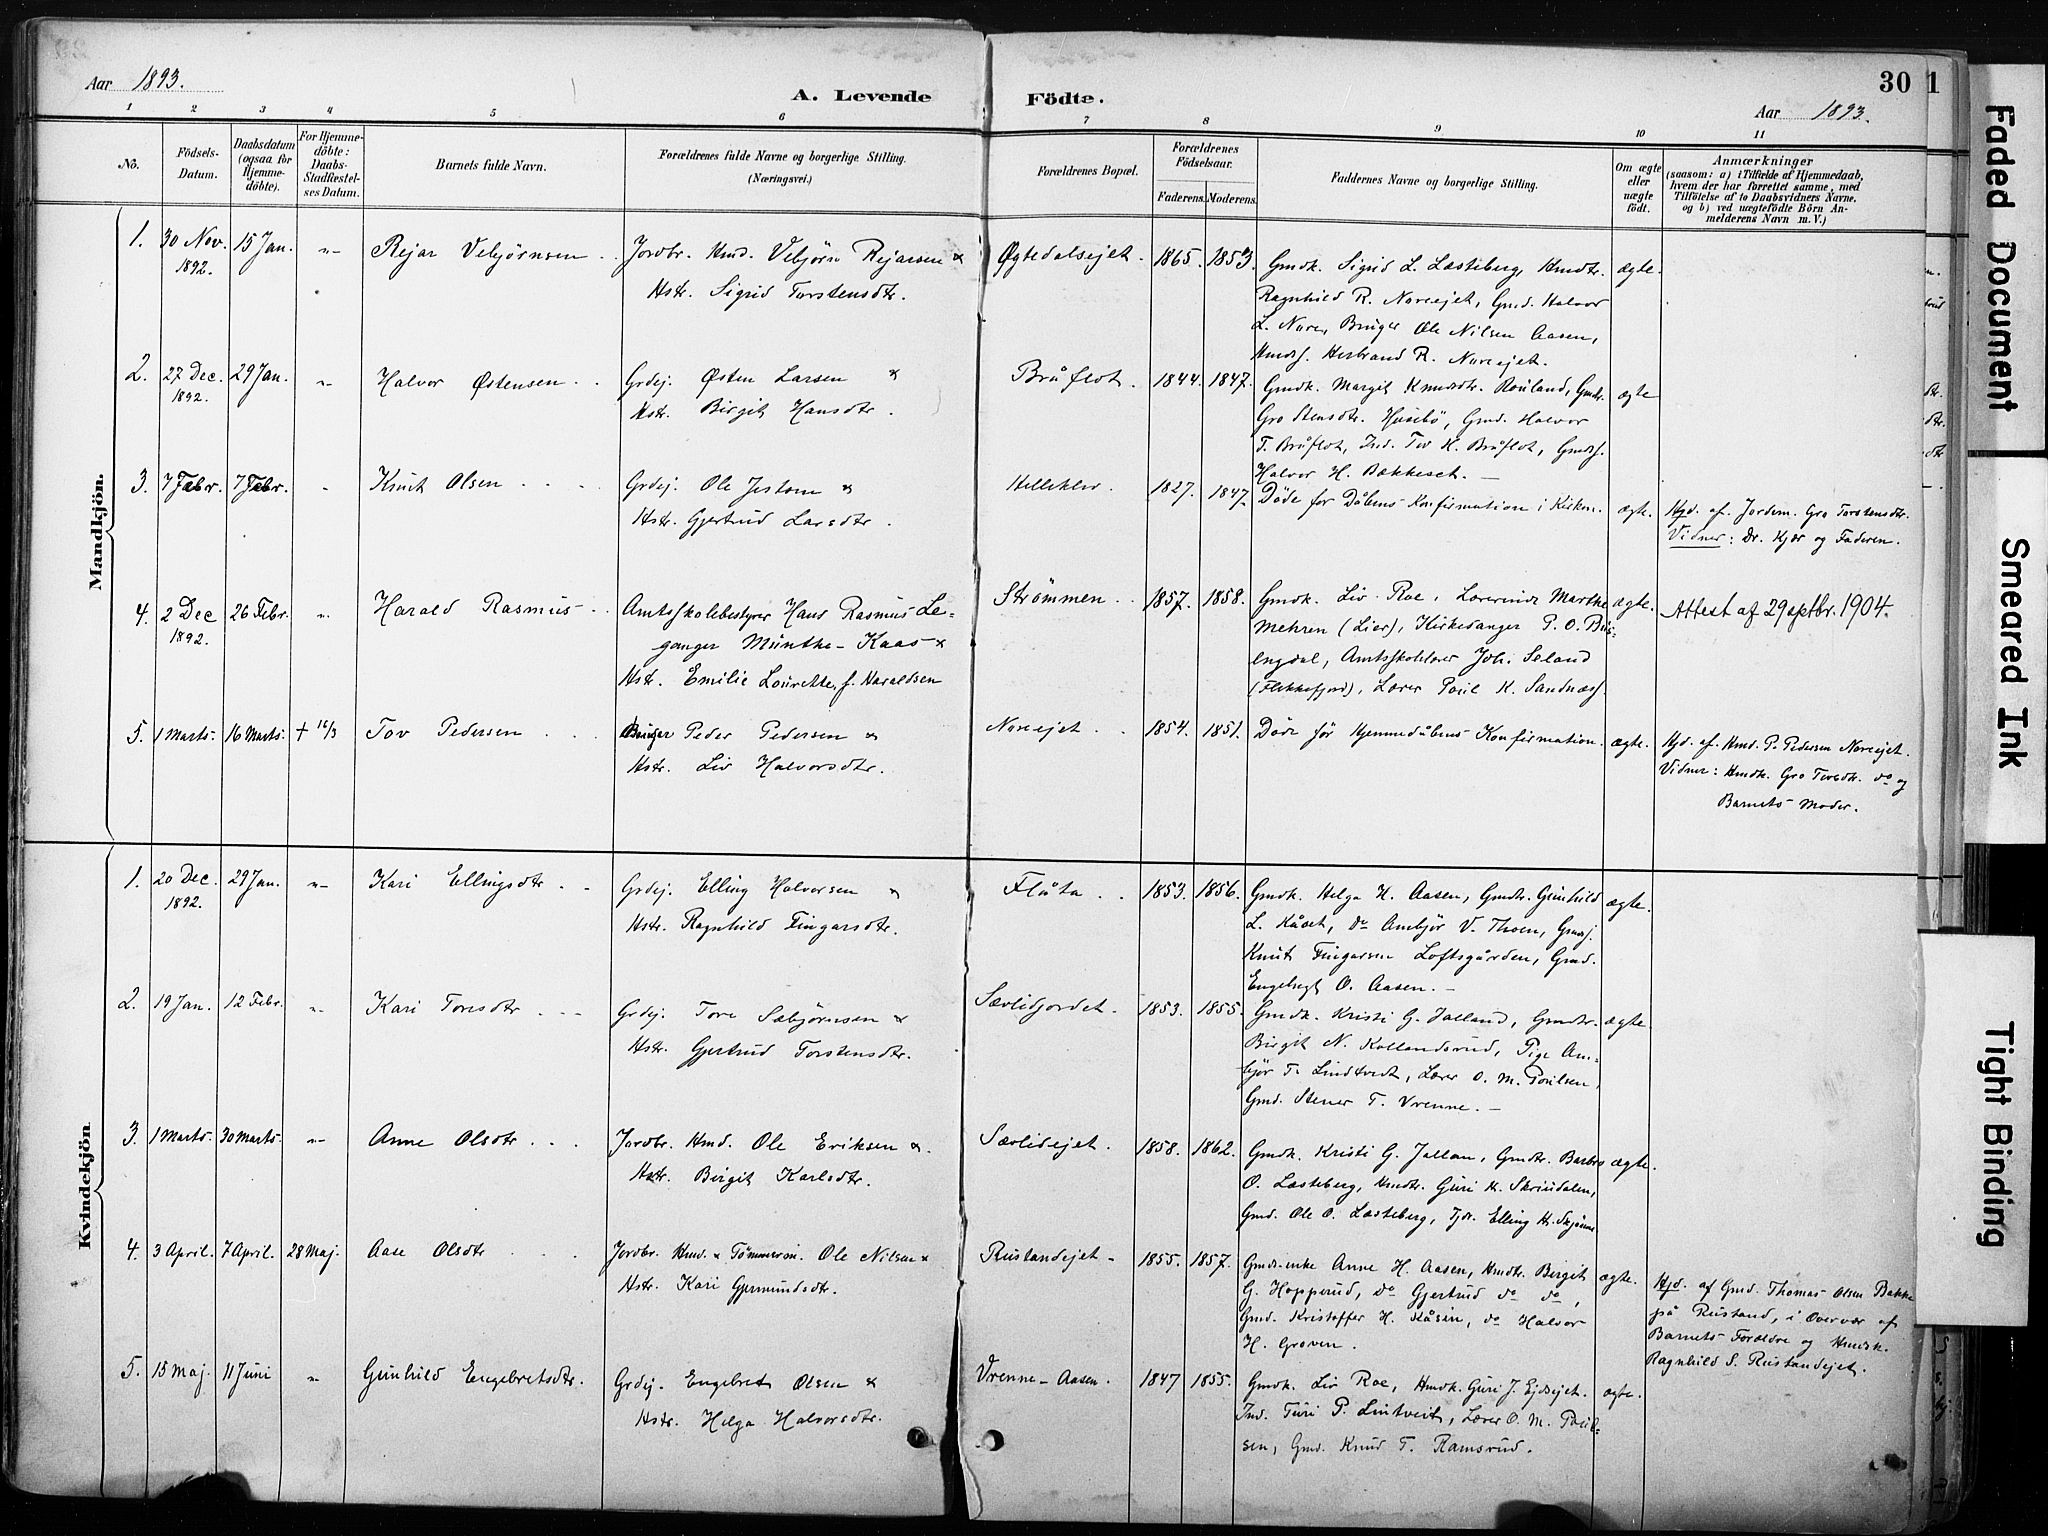 Aar 1893.
A. Levende Födte.
30
1
Aar 1893.
1 2 3 4 5 6 7 8 9 10 11
No.
Födsels-Datum.
Daabsdatum (ogsaa for Hjemmedöbte).
For Hjemmedöbte: Daabs-Stadfæstelses Datum.
Barnets fulde Navn.
Forældrenes fulde Navne og borgerlige Stilling.
(Næringsvei.)
Forældrenes Bopæl.
Forældrenes Födselsaar.
Faderens. Moderens.
Faddernes Navne og borgerlige Stilling.
Om ægte eller uægte födt.
Anmærkninger
(saasom: a) i Tilfælde af Hjemmedaab, hvem der har forrettet samme, med Tilföielse af to Daabsvidners Navne. og b) ved uægtefödte Börn Anmelderens Navn m. V.)
Mandkjön.
1. 30 Nov. 1892. 15 Jan. „ Rejar Vebjörnsen Jordbr. Hmd. Vebjörn Rejarsen &
Hstr. Sigrid Torstensdtr.
Øgtedalsejet. 1865. 1853. Gmdk. Sigrid L. Lasteberg, Hmdtr. ægte.
Ragnhild R. Noreejet, Gmd. Halvor
L. Nore, Bruger Ole Nilsen Aasen,
Hmds. Herbrand R. Noreejet.
2. 27 Dec. 1892. 29 Jan. „ Halvor Østensen Grdej. Østen Larsen &
Hstr. Birgit Hansdtr.
Bruflot. 1844. 1847. Gmdk. Margit Knudsdtr. Rouland, Gmdtr. ægte
Gro Stensdtr. Husebö, Gmd. Halvor
T. Bruflot, Ind. Tov H. Bruflot, Gmds.
Halvor H. Bækkeset.
3. 7 Febr. 7 Febr. „ Knut Olsen Grdej. Ole Jestom &
Hstr. Gjertrud Larsdtr.
1827. 1847. Döde for Dåbens Konfirmation i Kirken. ægte.
Hjd. af Jordem. Gro Torstensdtr.
Vidner: Dr. Hjör og Faderen.
4. 2 Dec 1892. 26 Febr. „ Harald Rasmus Amtsskolebestyrer Hans Rasmus Leganger Munthe-Kaas &
Hstr. Emilie Lourette, f. Haraldsen
Strömmen 1857. 1858. Gmdk. Liv Roe, Lærerinde Marthe ægte.
Mehren (Lier), Kirkesanger P. O. Buslengdal, Amtsskolelærer Joh. Seland
(Flekkefjord), Lærer Poul K. Sandnæs.
Attest af 29 septbr. 1904.
5. 1 Marts. 16 Marts. + 16/3 Tov Pedersen Bruger Peder Pedersen &
Hstr. Liv Halvorsdtr.
Noreejet. 1854. 1851. Döde för Hjemmedåbens Konfirmation. ægte.
Hjd. af Hmd. P. Pedersen Noreejet.
Vidner: Hmdk. Gro Tovsdtr. do og
Barnets Moder.
Kvindekjön
1. 20 Dec. 1892. 29 Jan. „ Kari Ellingsdtr. Grdej. Elling Halvorsen &
Hstr. Ragnhild Fingarsdtr.
Flåta 1853. 1856. Gmdk. Helga H. Aasen, Gmdtr. Gunhild ægte.
L. Kåset, do Ambjör V. Thoen, Gmds.
Knut Fingarsen Loftsgården, Gmd.
Engebregt O. Aasen.
2. 19 Jan. 12 Febr. „ Kari Toresdtr Grdej. Tore Sebjörnsen &
Hstr. Gjertrud Torstensdtr.
Sævlidjordet. 1853. 1855. Gmdk. Kristi G. Jalland, Gmdtr. ægte.
Birgit N. Kollandsrud, Pige Ambjör T. Lindtvedt, Lærer O. M. Poulsen,
Gmd. Stener T. Vrenne.
3. 1 Marts. 30 Marts. „ Anne Olsdtr Jordbr. Hmd. Ole Eriksen &
Hstr. Birgit Karlsdtr.
Sævlidejet. 1858. 1862. Gmdk. Kristi G. Jallan, Gmdtr. Barbro ægte.
O. Lasteberg, Hmdtr. Guri H. Skriudalen,
Gmd. Ole O. Lasteberg, Tjdr. Elling H. Skjönne
4. 3 April. 7 April. 28 Maj. Aase Olsdtr Jordbr. Hmd. & Tömmerm. Ole Nilsen &
Hstr. Kari Gjermundsdtr.
Rustandejet 1855. 1857. Gmds-enke Anne H. Aasen, Hmdtr. Birgit ægte.
G. Hopperud, do Gjertrud do do,
Gmd. Kristoffer H. Kåsin, do Halvor
H. Groven.
Hjd. af Gmd. Thomas Olsen Bakke
på Rustand, i Overvær af
Barnets Forældre og Hmdk.
Ragnhild S. Rustandejet.
5. 15 Maj. 11 Juni „ Gunhild Engebretsdtr. Grdej. Engebret Olsen &
Hstr. Helga Halvorsdtr.
Vrenne-Aasen. 1847 1855. Gmdk. Liv Roe, Hmdk. Guri J. Ejdsejet. ægte.
Ind. Turi P. Lintveit, Lærer O. M. Poulsen, Gmd. Knud T. Ramsrud.
Faded Document
Smeared Ink
Tight Binding